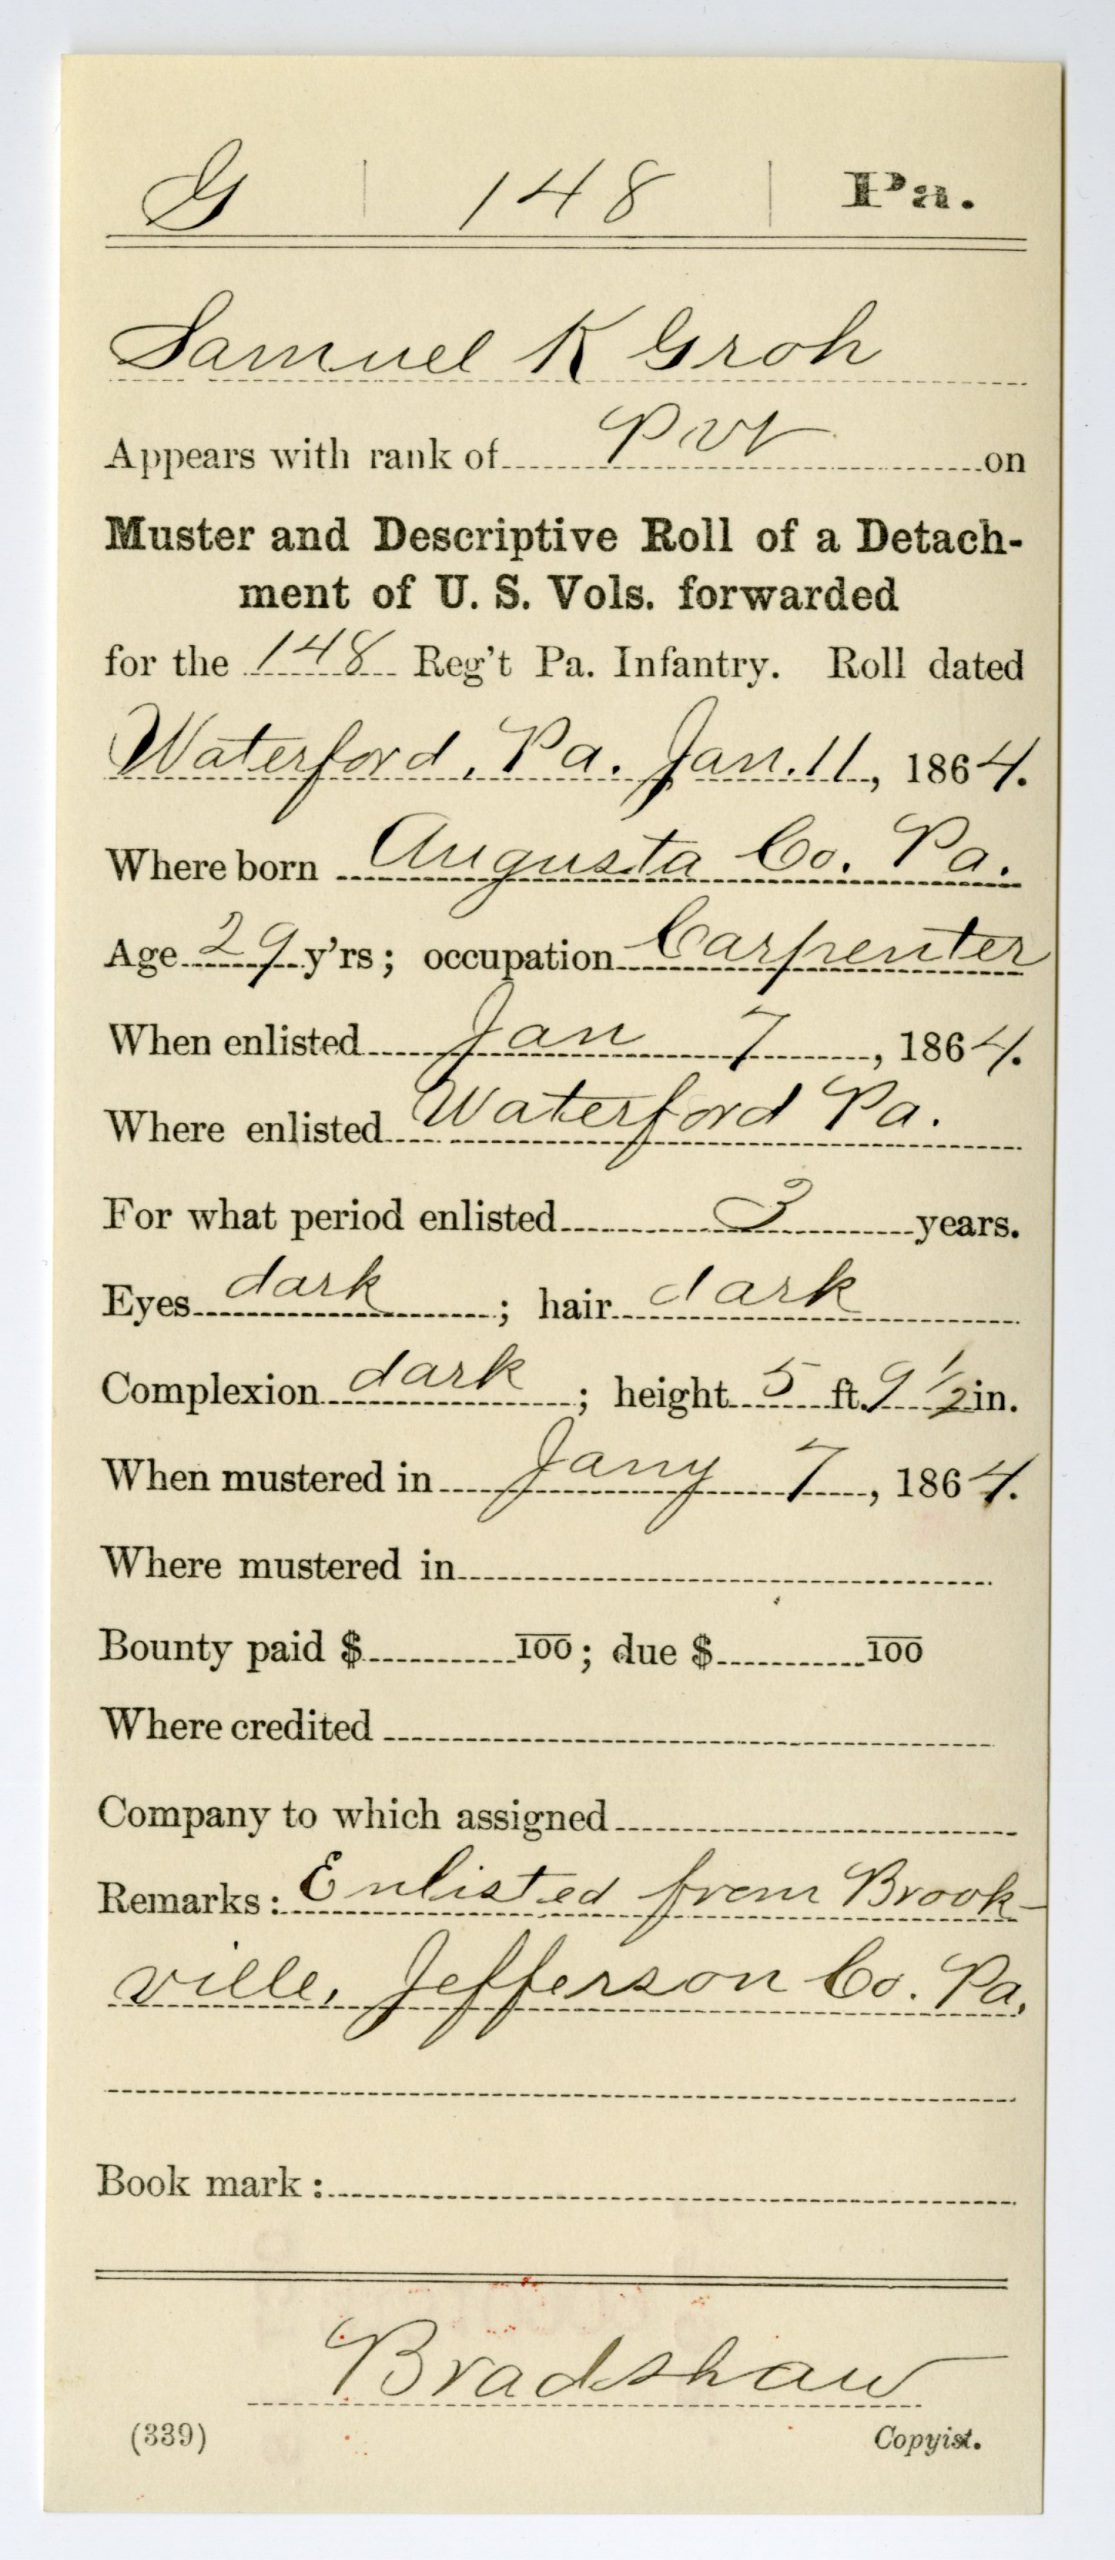 G | 148 | Pa.
Samuel K Groh
Appears with rank of Pvt on
Muster and Descriptive Roll of a Detach-
ment of U. S. Vols. forwarded
for the 148 Reg't Pa. Infantry. Roll dated
Waterford, Pa. Jan. 11, 1864.
Where born Augusta Co. Pa.
Age 29 y'rs; occupation Carpenter
When enlisted Jan 7, 1864.
Where enlisted Waterford Pa.
For what period enlisted 3 years.
Eyes dark; hair dark
Complexion dark; height 5 ft. 9 1/2 in.
When mustered in Jany 7, 1864.
Where mustered in
Bounty paid $ 100; due $ 100
Where credited
Company to which assigned
Remarks: Enlisted from Brook-
ville, Jefferson Co. Pa.
Book mark:
Bradshaw
(339) Copyist.